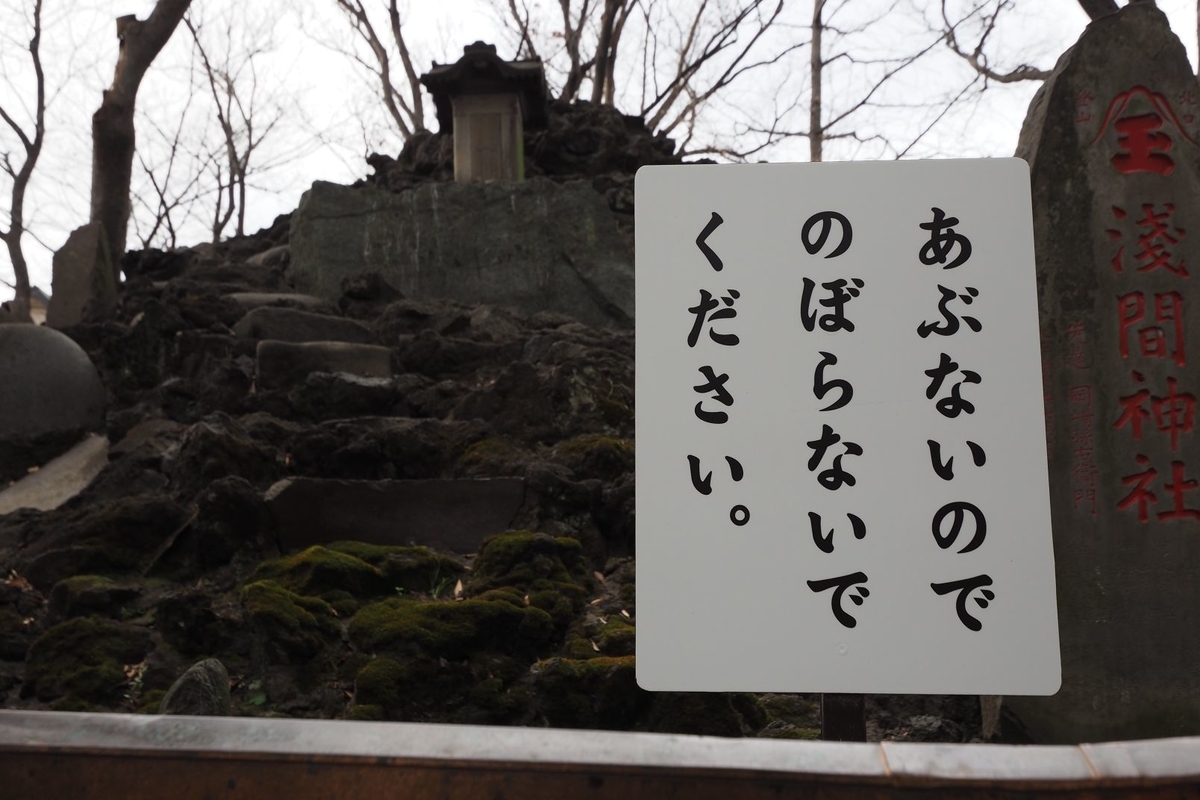 あぶないので
のぼらないで
ください。
淺間神社